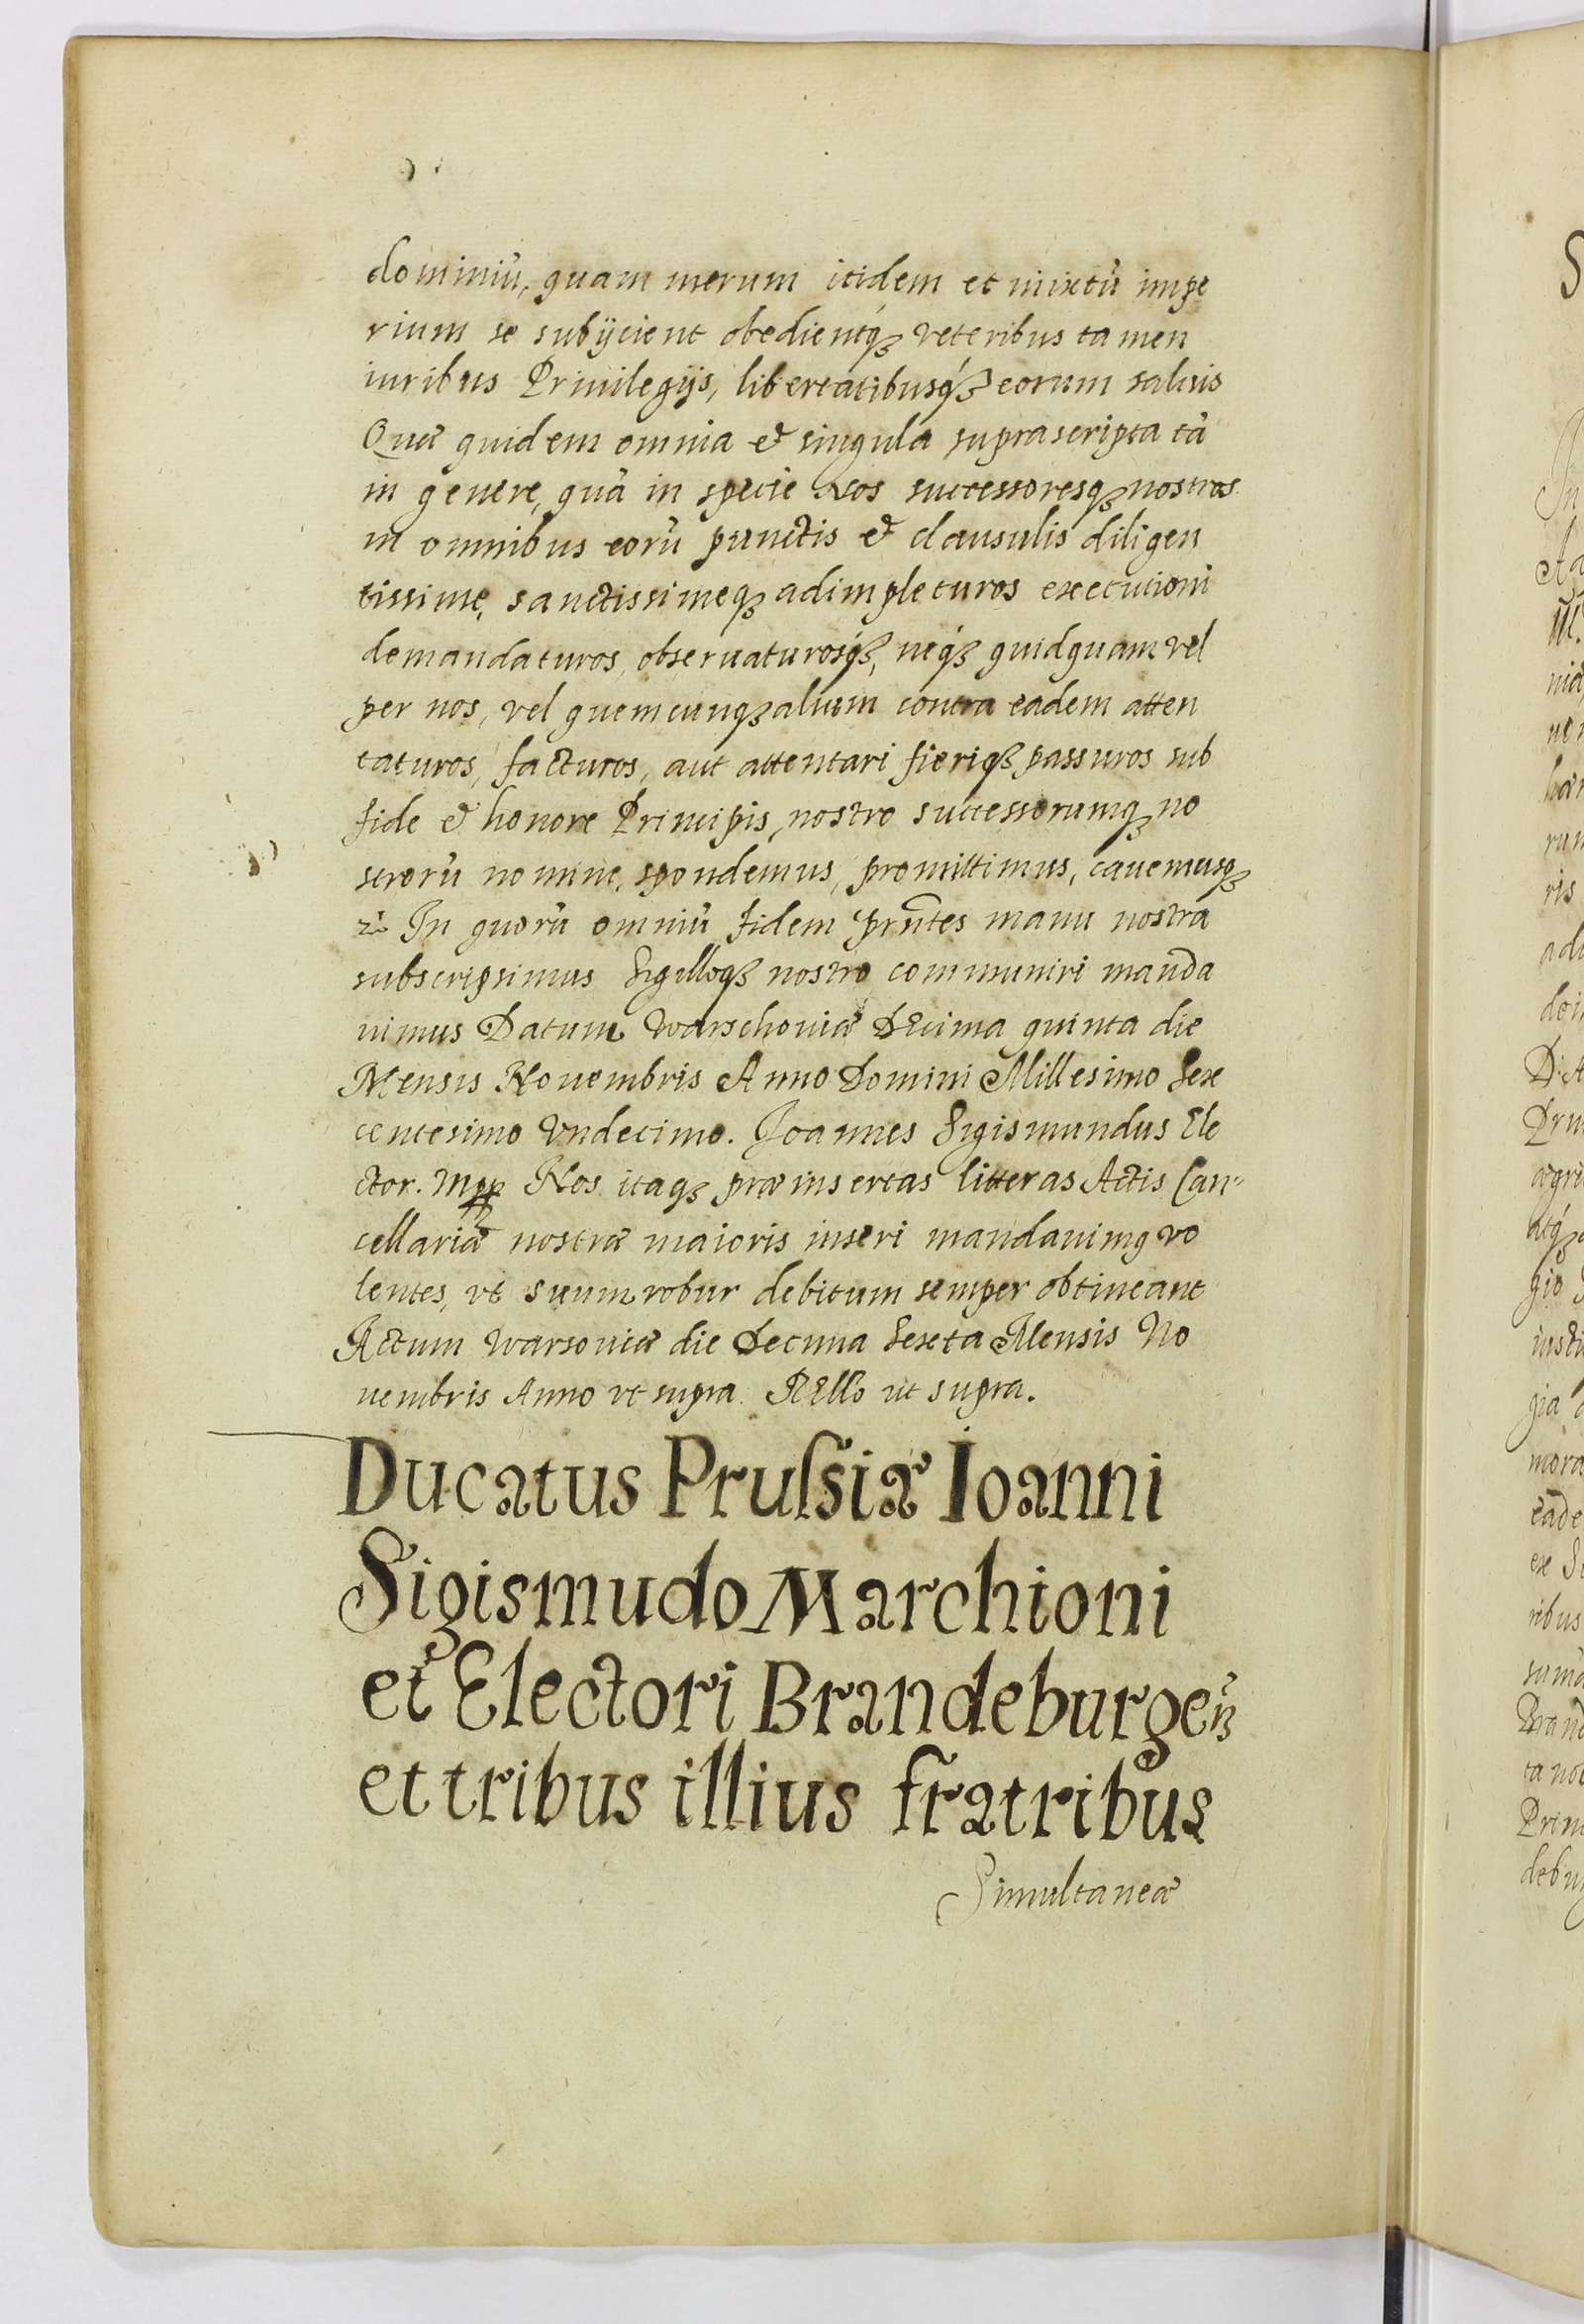 dominiũ, quam merum itidem et mixtũ impe
rium se subijcient obedientq́ꝫ veteribus tamen
iuribus Priuilegijs, libertatibusq́ꝫ eorum saluis
Quæ quidem omnia & singula suprascripta tã
in genere, quã in specie Nos successoresqꝫ nostros
in omnibus eorũ punctis & clausulis diligen
tissime, sanctissimeqꝫ adimpleturos executioni
demandaturos, obseruaturosq́ꝫ, neq́ꝫ quidquam vel
per nos, vel quemcunqꝫ alium contra eadem atten
taturos, facturos, aut attentari fieriqꝫ passuros sub
fide & honore Principis, nostro successorumqꝫ no
strorũ nomine, spondemus, promittimus, cauemusqꝫ
In quorũ omniũ fidem prñtes manu nostra
subscripsimus Sigilloqꝫ nostro communiri manda
uimus Datum Warschouiæ Decima quinta die
Mensis Nouembris Anno Domini Millesimo Sex
centesimo Vndecimo. Joannes Sigismundus Ele
ctor. Mpp Nos itaqꝫ præinsertas litteras Actis Can-
cellariæ nostræ maioris inseri mandauimꝰ vo
lentes, vt suum robur debitum semper obtineant
Actum Warsouiæ die Decima Sexta Mensis No
uembris Anno vt supra. Rello ut supra.
Ducatus Prussiæ Ioanni
Sigismudo Marchioni
et Electori Brandeburgeñ
et tribus illius fratribus
Simultaneæ